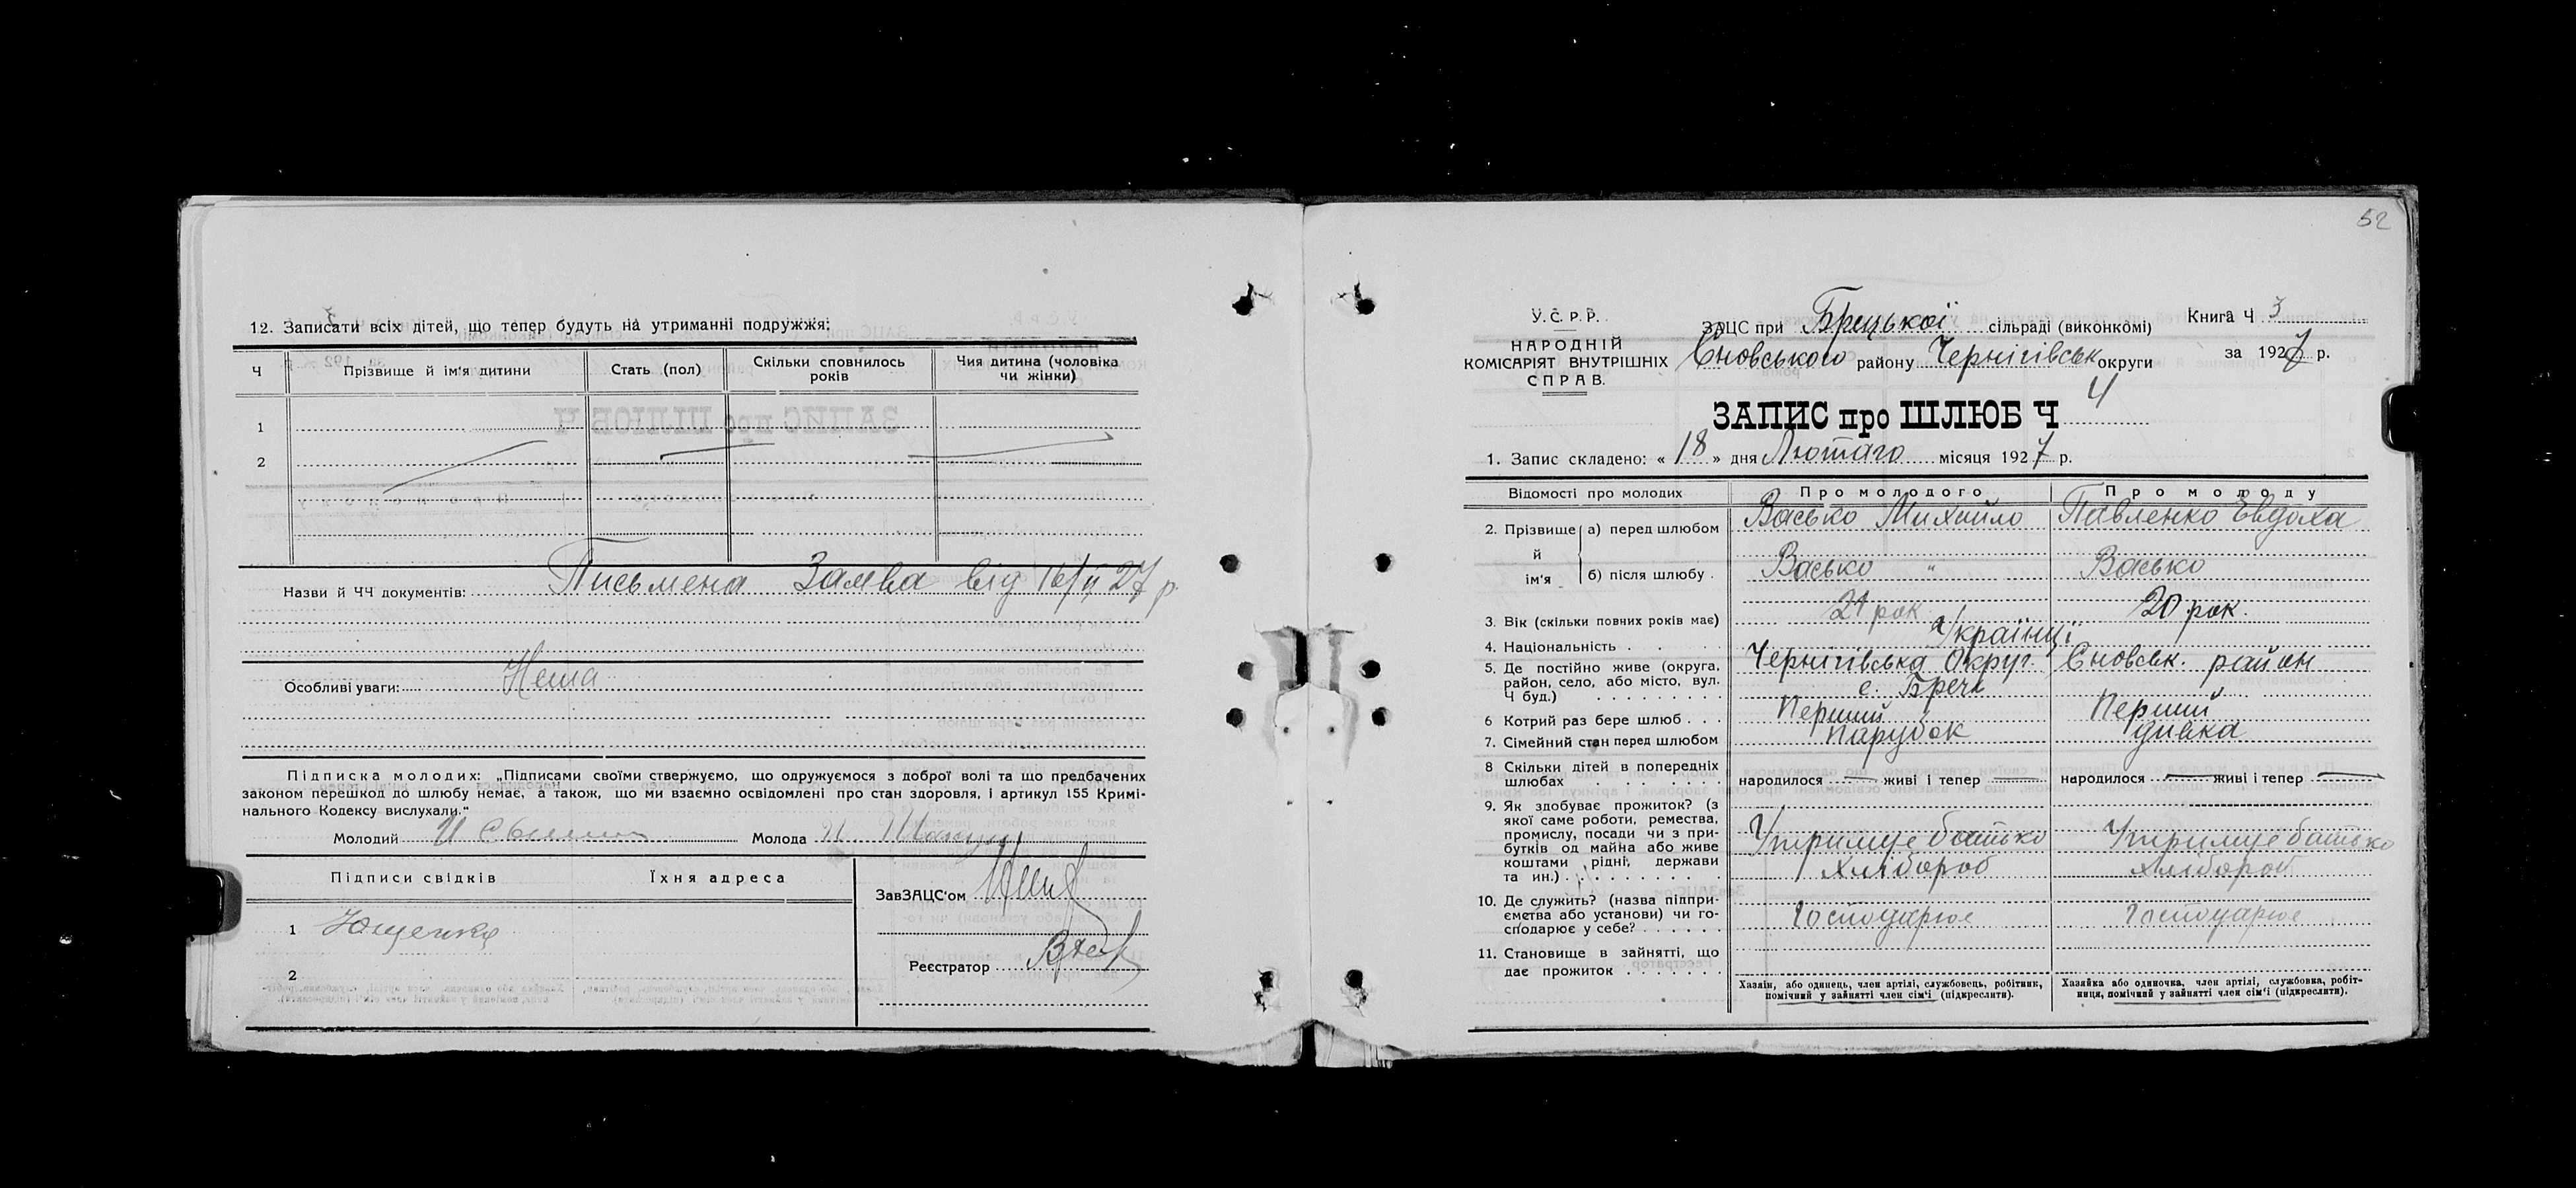 12. Записати всіх дітей, що тепер будуть на утриманні подружжя:
Ч
Прізвище й ім'я дитини
Стать (пол)
Скільки сповнилось років
Чия дитина (чоловіка чи жінки)
1
2
Назви й ЧЧ документів: Письмена Заява від 16/ІІ 27 р.
Особливі уваги: Нема
Підписка молодих: „Підписами своїми стверджуємо, що одружуємося з доброї волі та що предбачених
законом перешкод до шлюбу немає, а також, що ми взаємно освідомлені про стан здоровля, і артикул 155 Кримі-
нального Кодексу вислухали."
Молодий
Молода
Підписи свідків
Їхня адреса
ЗавЗАЦС'ом
1 Ющенко
2
Реєстратор
52
У.С.Р.Р.
НАРОДНІЙ
КОМІСАРІЯТ ВНУТРІШНІХ
СПРАВ.
ЗАЦС при Брецької сільраді (виконкомі)
Сновського району Чернігівськ округи
Книга Ч 3
за 1927 р.
ЗАПИС про ШЛЮБ Ч 4
1. Запис складено: « 18 » дня Лютаго місяця 1927 р.
Відомості про молодих
Про молодого
Про молоду
2. Прізвище й ім'я
а) перед шлюбом Васько Михайло Павленко Евдоха
б) після шлюбу . Васько " Васько
3. Вік (скільки повних років має) 21 рок 20 рок.
4. Національність . Українці
5. Де постійно живе (округа, Чернігівська Округ. Сновськ. район
район, село, або місто, вул. с. Бреч
Ч буд.)
6 Котрий раз бере шлюб . . . Перший Перший
7. Сімейний стан перед шлюбом парубок дивка
8 Скільки дітей в попередніх
шлюбах народилося — живі і тепер — народилося — живі і тепер —
9. Як здобуває прожиток? (з
якої саме роботи, ремества,
промислу, посади чи з при-
бутків од майна або живе Утримує батько Утримує батько
коштами рідні, держави Хлібороб Хлібороб
та ин.)
10. Де служить? (назва підпри-
ємства або установи) чи го- Господарює Господарює
сподарює у себе?
11. Становище в зайнятті, що
дає прожиток
Хазяїн, або одинець, член артілі, службовець, робітник,
помічний у зайнятті член сім'ї (підкреслити).
Хазяйка або одиночка, член артілі, службовка, робіт-
ниця, помічний у зайнятті член сім'ї (підкреслити).